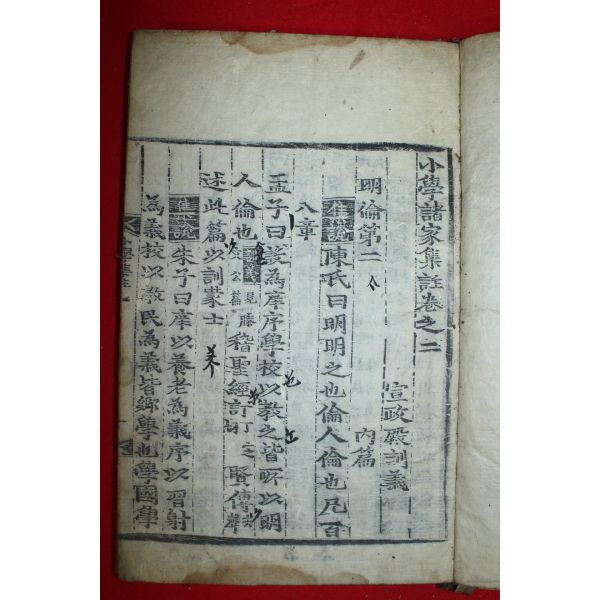 小學諸家集註卷之二
宣政殿訓義
明倫第二 內篇
集說陳氏曰明明之也倫人倫也凡百
八章
孟子曰設為庠序學校以教之皆所以明
人倫也 見滕文公篇 稽聖經訂賢傳
述此篇以訓蒙士
集說朱子曰庠以養老為義序以習射
為義校以教民為義皆鄉學也學國學